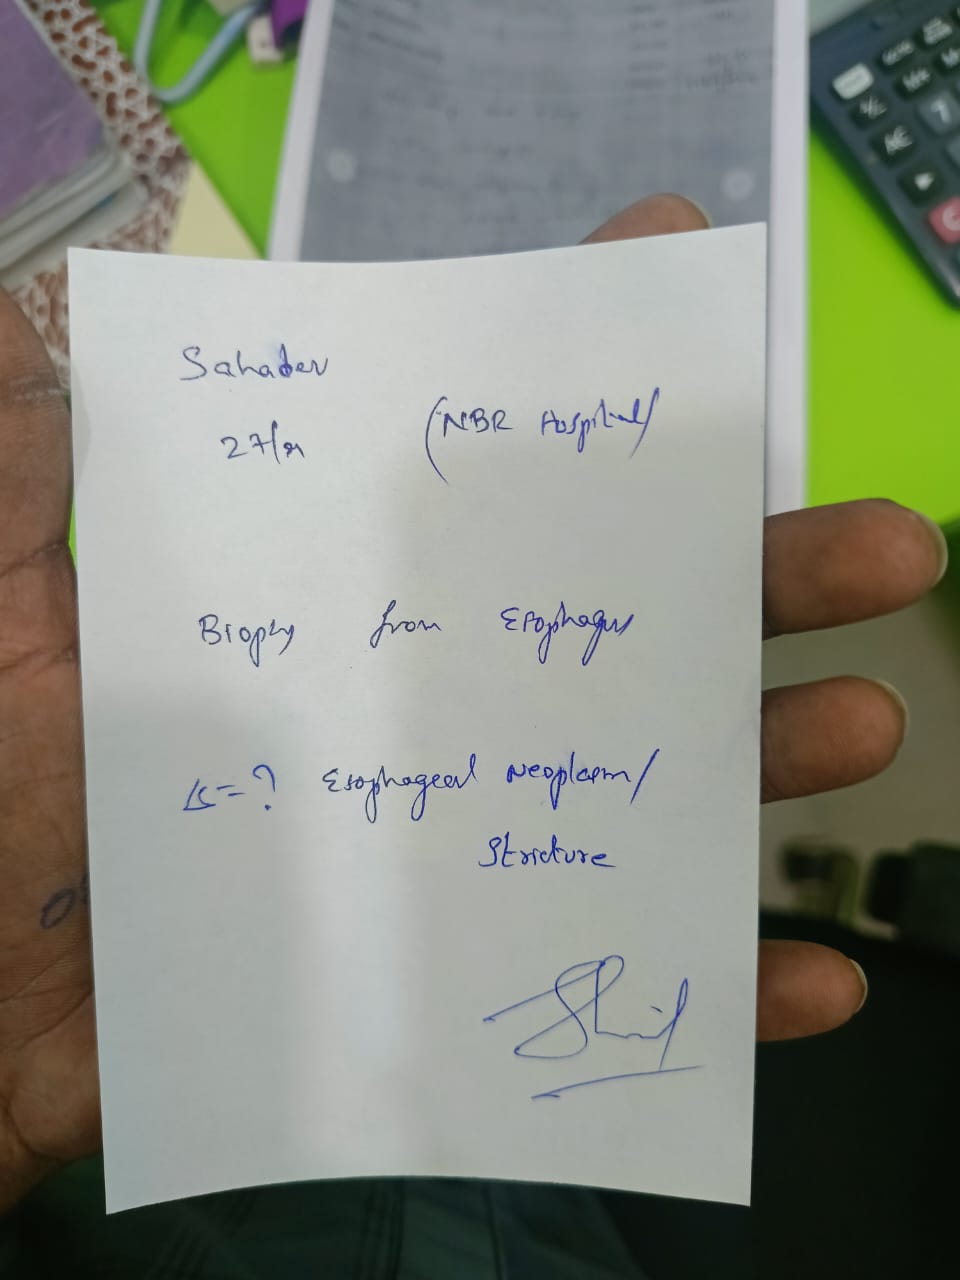 Sahadev
27/M (NBR Hospital)
Biopsy from Esophagus
Δ = ? Esophageal Neoplasm/
Stricture